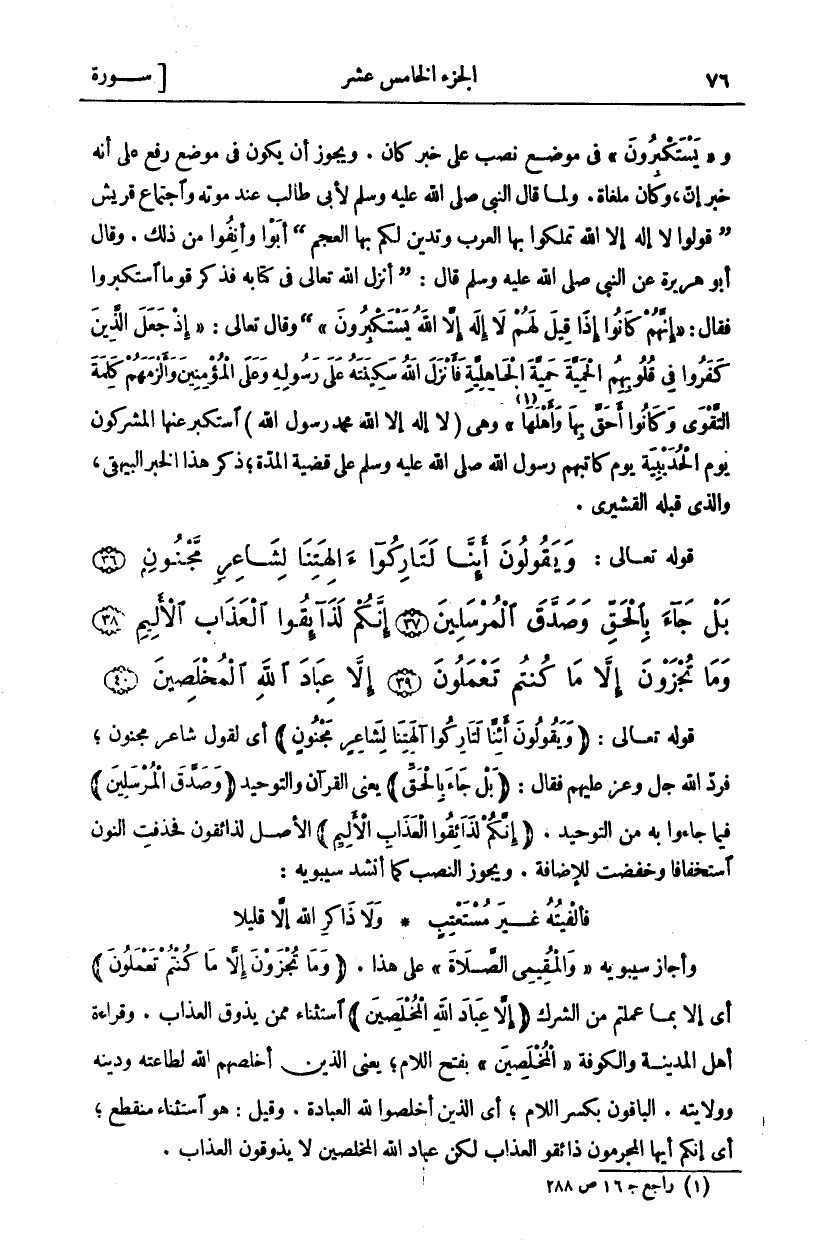 ٧٦ الجزء الخامس عشر [ سـورة
و « يَسْتَكْبِرُونَ » فى موضع نصب على خبر كان . ويجوز أن يكون فى موضع رفع على أنه
خبر إنّ، وكان ملغاة . ولما قال النبي صلى الله عليه وسلم لأبى طالب عند موته وآجتماع قريش
” قولوا لا إله إلا الله تملكوا بها العرب وتدين لكم بها العجم “ أَبَوْا وأَنِفُوا من ذلك . وقال
أبو هريرة عن النبي صلى الله عليه وسلم قال : ” أنزل الله تعالى فى كتابه فذكر قوما آستكبروا
فقال : « إِنَّهُمْ كَانُوا إِذَا قِيلَ لَهُمْ لَا إِلهَ إِلَّا اللهُ يَسْتَكْبِرُونَ » “ وقال تعالى : « إِذْ جَعَلَ الَّذِينَ
كَفَرُوا فِي قُلُوبِهِمُ الْحَمِيَّةَ حَمِيَّةَ الْجَاهِلِيَّةِ فَأَنْزَلَ اللهُ سَكِينَتَهُ عَلَى رَسُولِهِ وَعَلَى الْمُؤْمِنِينَ وَأَلْزَمَهُمْ كَلِمَةَ
التَّقْوَى وَكَانُوا أَحَقَّ بِهَا وَأَهْلَهَا(١) » وهى ( لا إله إلا الله محمد رسول الله ) آستكبر عنها المشركون
يوم الْحُدَيْبِيَة يوم كاتبهم رسول الله صلى الله عليه وسلم على قضية المدّة ؛ ذكر هذا الخبر البيهقى ،
والذى قبله القشيرى .
قوله تعـالى : وَيَقُولُونَ أَئِنَّا لَتَارِكُوٓا ءَالِهَتِنَا لِشَاعِرٍ مَّجْنُونٍ ٣٦
بَلْ جَآءَ بِٱلْحَقِّ وَصَدَّقَ ٱلْمُرْسَلِينَ ٣٧ إِنَّكُمْ لَذَآئِقُوا ٱلْعَذَابِ ٱلْأَلِيمِ ٣٨
وَمَا تُجْزَوْنَ إِلَّا مَا كُنتُمْ تَعْمَلُونَ ٣٩ إِلَّا عِبَادَ ٱللَّهِ ٱلْمُخْلَصِينَ ٤٠
قوله تعـالى : ﴿ وَيَقُولُونَ أَئِنَّا لَتَارِكُوا آلِهَتِنَا لِشَاعِرٍ مَجْنُونٍ ﴾ أى لقول شاعر مجنون ؛
فردّ الله جل وعز عليهم فقال : ﴿ بَلْ جَاءَ بِالْحَقِّ ﴾ يعنى القرآن والتوحيد ﴿ وَصَدَّقَ الْمُرْسَلِينَ ﴾
فيما جاءوا به من التوحيد . ﴿ إِنَّكُمْ لَذَائِقُوا الْعَذَابِ الْأَلِيمِ ﴾ الأصل لذائقون فحذفت النون
آستخفافا وخفضت للإضافة . ويجوز النصب كما أنشد سيبويه :
فألفيتُهُ غـيـرَ مُسْتَعْتِبٍ * وَلَا ذَاكِرِ الله إلّا قليلا
وأجاز سيبويه « وَالْمُقِيمِى الصَّلَاةَ » على هذا . ﴿ وَمَا تُجْزَوْنَ إِلَّا مَا كُنْتُمْ تَعْمَلُونَ ﴾
أى إلا بمـا عملتم من الشرك ﴿ إِلَّا عِبَادَ اللهِ الْمُخْلَصِينَ ﴾ آستثناء ممن يذوق العذاب . وقراءة
أهل المدينـة والكوفة « الْمُخْلَصِينَ » بفتح اللام ؛ يعنى الذين أخلصهم الله لطاعته ودينه
وولايته . الباقون بكسر اللام ؛ أى الذين أخلصوا لله العبادة . وقيل : هو آستثناء منقطع ؛
أى إنكم أيها المجرمون ذائقو العذاب لكن عباد الله المخلصين لا يذوقون العذاب .
(١) راجع ج ١٦ ص ٢٨٨